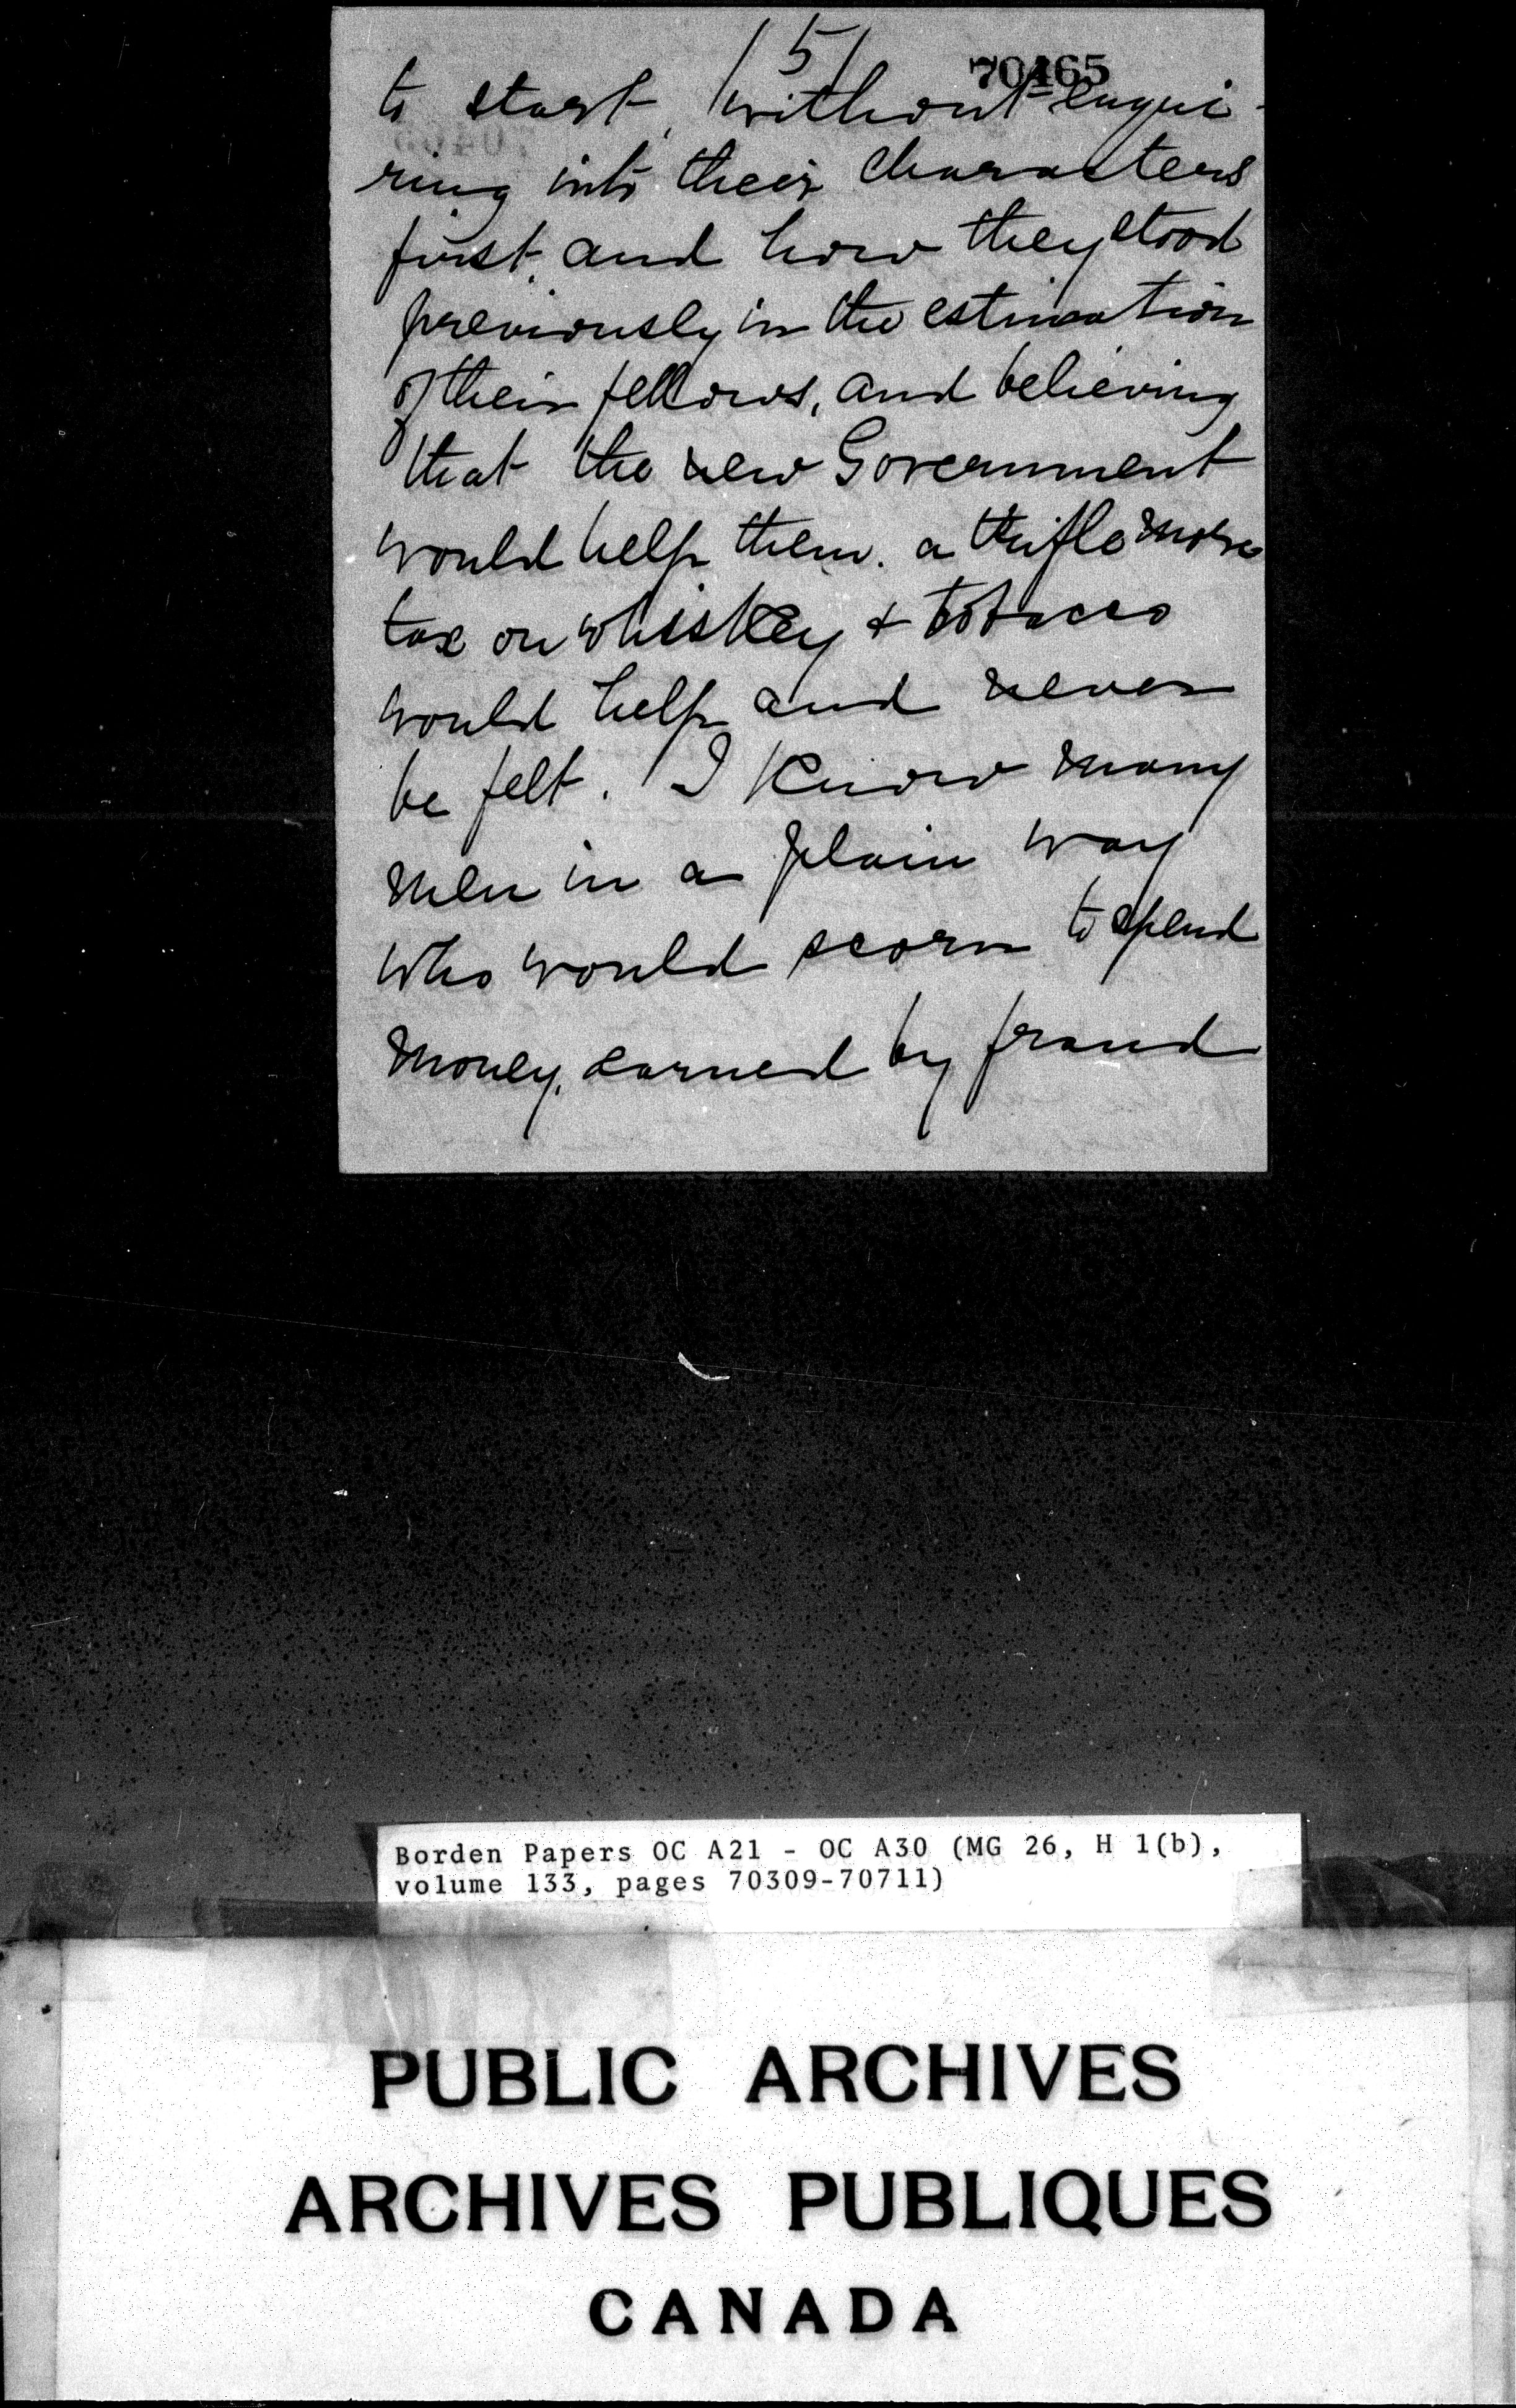 /5/
70465
to start, without enqui-
ring into their characters
first, and how they stood
previously in the estimation
of their fellows, and believing
that the new Government
would help them. a trifle more
tax on whiskey & tobacco
would help and never
be felt. I know many
men in a plain way
who would scorn to spend
money, earned by fraud
Borden Papers OC A21 - OC A30 (MG 26, H 1(b),
volume 133, pages 70309-70711)
PUBLIC ARCHIVES
ARCHIVES PUBLIQUES
CANADA